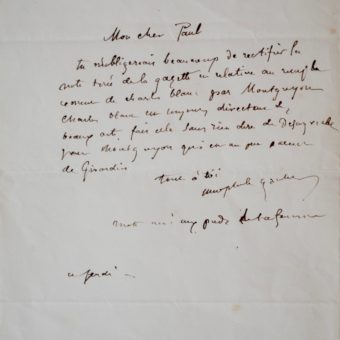 Mon cher Paul
tu m'obligerais beaucoup de rectifier la
note tirée de la gazette en relative au
comme de charles blanc par Montguyon
Charles blanc est toujours directeur des
beaux art, fais cela sans rien dire de
pour Montguyon qui en un peu
de Girardin
tout à toi
theophile Gautier
mets moi aux pieds de ta femme
ce jeudi